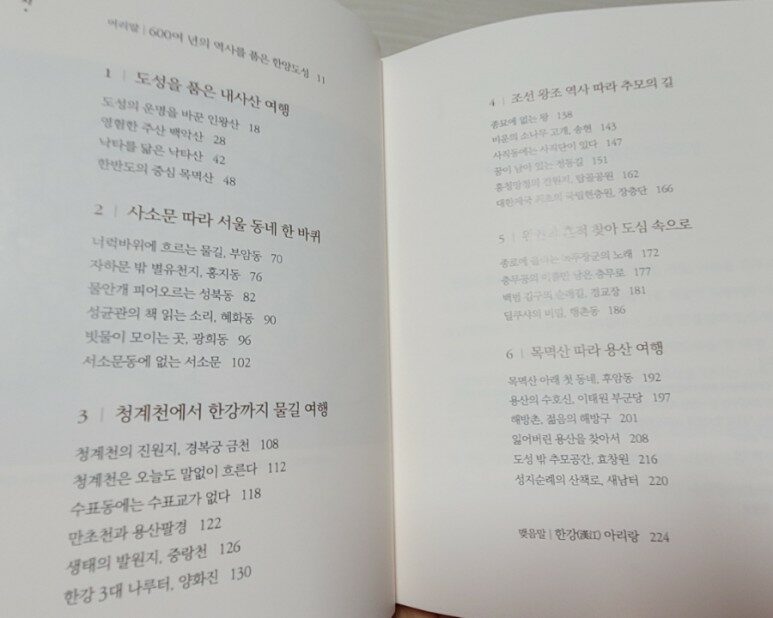 머리말 | 600여 년의 역사를 품은 한양도성 11
1 | 도성을 품은 내사산 여행
도성의 운명을 바꾼 인왕산 18
영험한 주산 백악산 28
낙타를 닮은 낙타산 42
한반도의 중심 목멱산 48
2 | 사소문 따라 서울 동네 한 바퀴
너럭바위에 흐르는 물길, 부암동 70
자하문 밖 별유천지, 홍지동 76
물안개 피어오르는 성북동 82
성균관의 책 읽는 소리, 혜화동 90
빗물이 모이는 곳, 광희동 96
서소문동에 없는 서소문 102
3 | 청계천에서 한강까지 물길 여행
청계천의 진원지, 경복궁 금천 108
청계천은 오늘도 말없이 흐른다 112
수표동에는 수표교가 없다 118
만초천과 용산팔경 122
생태의 발원지, 중랑천 126
한강 3대 나루터, 양화진 130
4 | 조선 왕조 역사 따라 추모의 길
종묘에 없는 왕 138
비운의 소나무 고개, 송현 143
사직동에는 사직단이 있다 147
꿈이 남아 있는 정동길 151
흥청망청의 진원지, 탑골공원 162
대한제국 최초의 국립현충원, 장충단 166
5 | 흔적 찾아 도심 속으로
종로에 녹두장군의 노래 172
충무공의 남은 충무로 177
백범 김구의 순례길, 경교장 181
딜쿠샤의 비밀, 행촌동 186
6 | 목멱산 따라 용산 여행
목멱산 아래 첫 동네, 후암동 192
용산의 수호신, 이태원 부군당 197
해방촌, 젊음의 해방구 201
잃어버린 용산을 찾아서 208
도성 밖 추모공간, 효창원 216
성지순례의 산책로, 새남터 220
맺음말 | 한강(漢江) 아리랑 224